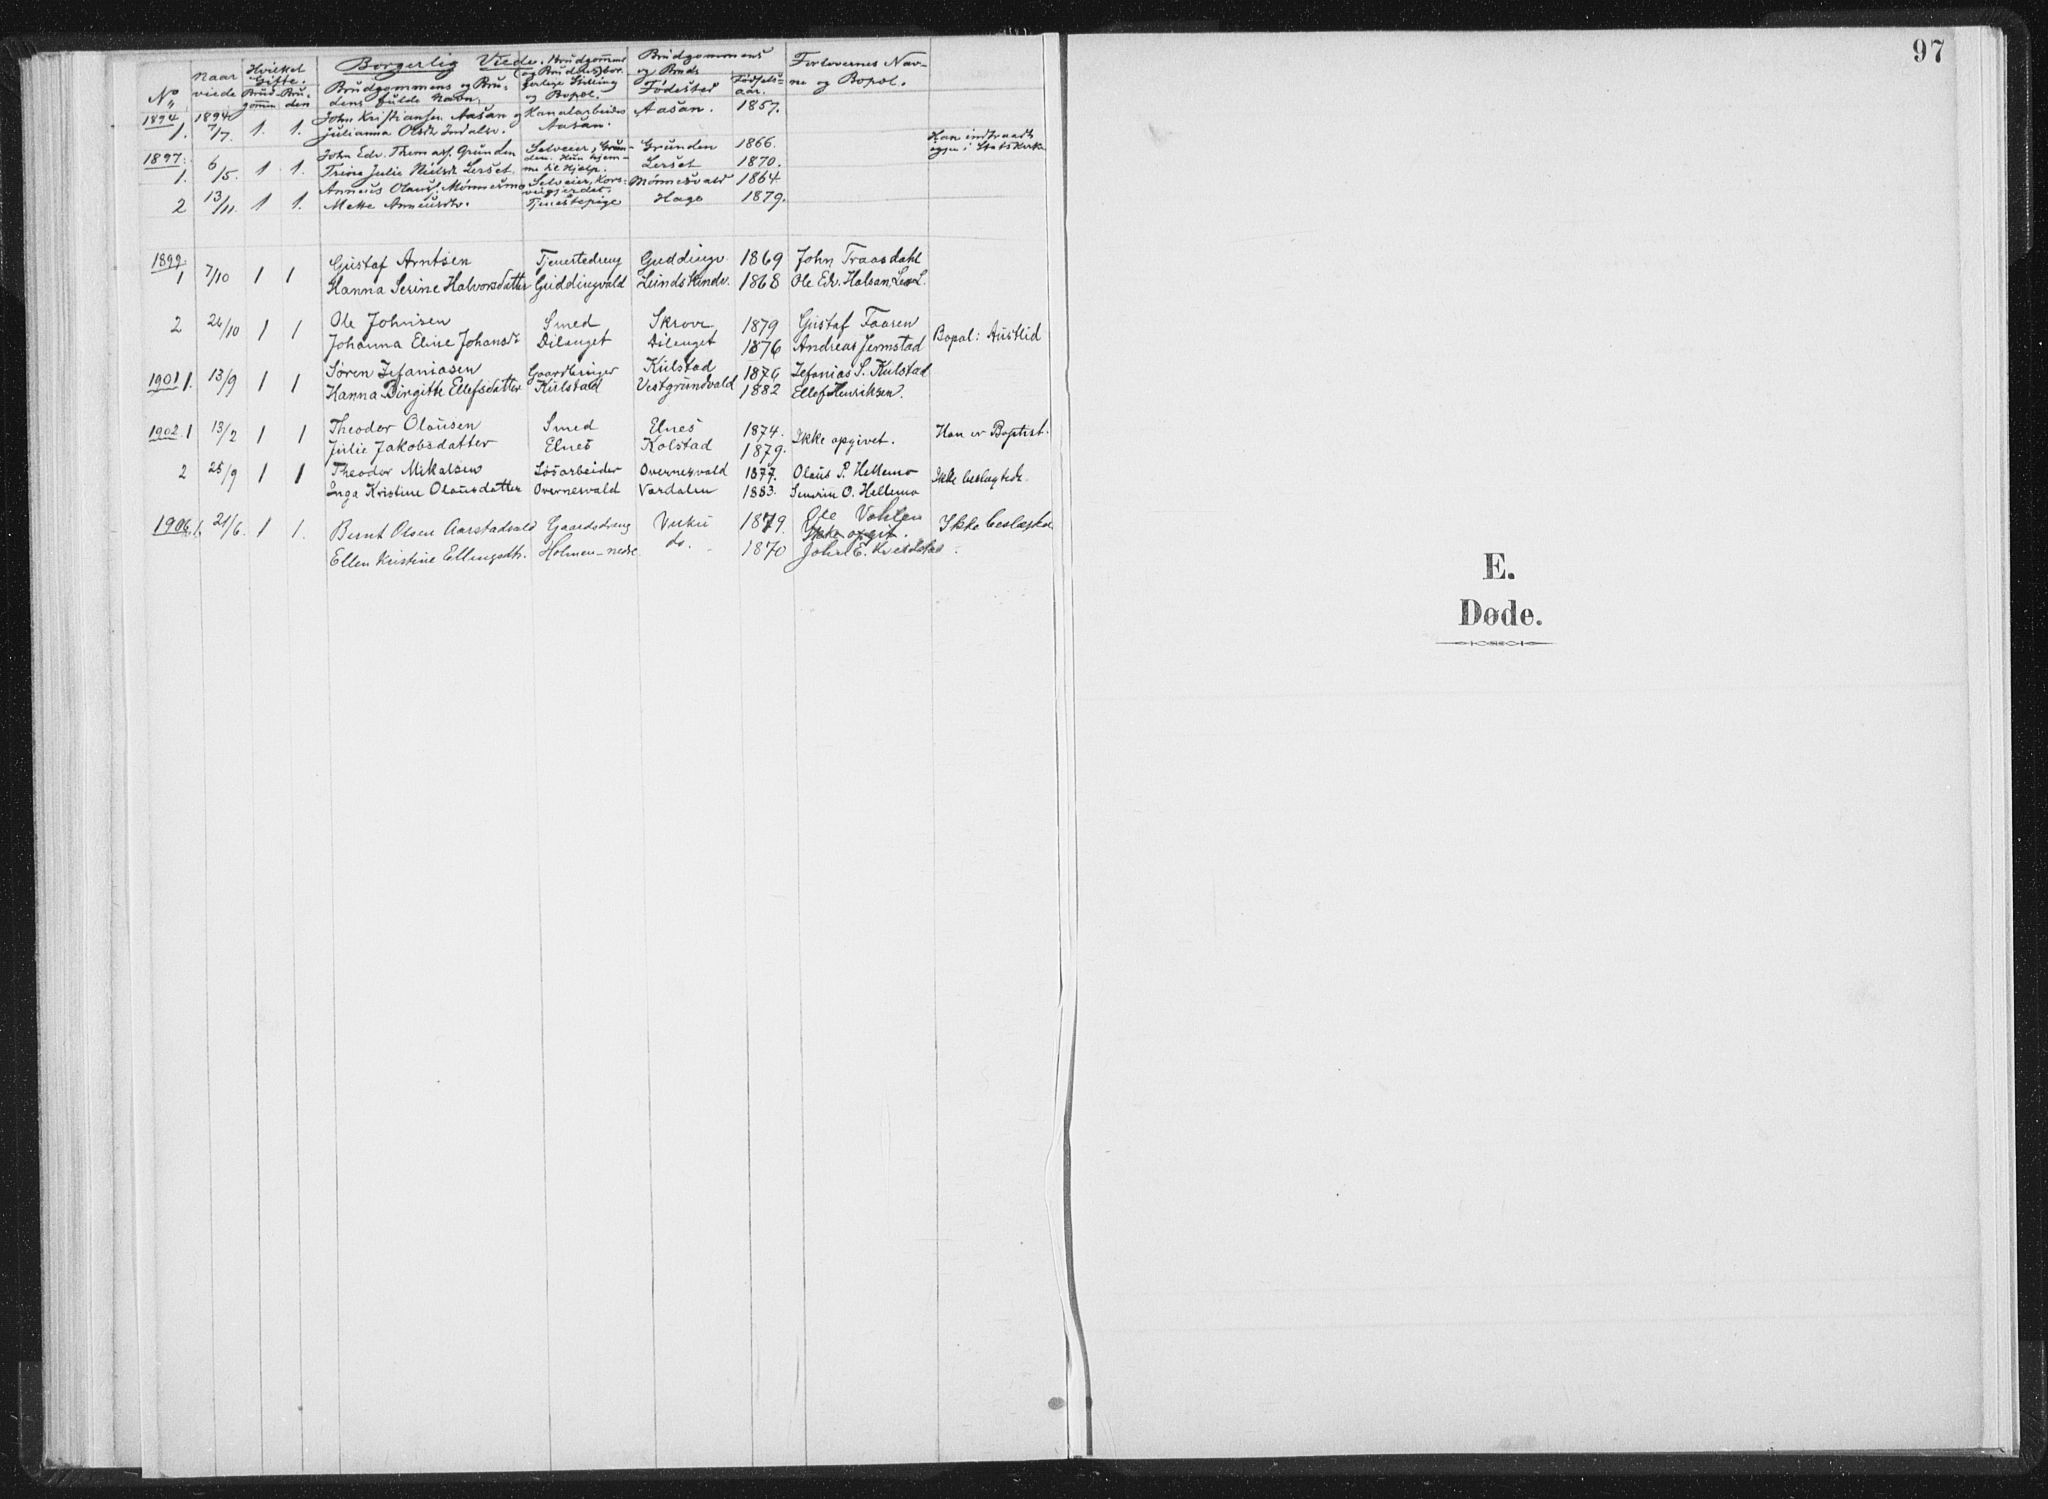 97
Borgerlig Viede.
No
Naar viede
Hvilket Gifte.
Brudgomm
Bruden
Brudgommens og Brudens fulde Navn.
Brudgommens og Brudens borgerlige Stilling og Bopæl.
Brudgommens og Bruds Fødested
Fødselsaar.
Forlovernes Navne og Bopæl.
1894 1894 John Kristiansen Aasan og Kanalarbeider Aasan. 1857.
1. 7/7. 1. 1. Julianna Olsdtr Indalsv. Aasan.
1897. 6/5. 1 1. John Edv. Thomass. Grunden Selveier, Grunden. Hun hjemme til Hjælp. Grunden 1866. Han indtraadt igjen i Statskirk
1. Trine Julie Nielsdr Lerset. Lerset 1870.
2 13/11. 1 1. Anneus Olauss. Selveier, Mønnesvald 1864.
Mette Anneusdtr. Tjenestepige Hage 1879.
1899
1 7/10 1 1 Gustaf Arntsen Tjenestedreng Guddingv 1869 John Traasdahl
Hanna Serine Halvorsdatter Guddingvald Lundskindv. 1868 Ole Edv. Halsan
2 26/10 1 1 Ole Johnsen Smed Skrove 1879 Gustaf Faaren
Johanna Eline Johansdr Dilenget Dilenget 1876 Andreas Jermstad Bopæl: Austlid
1901 1. 13/9 1 1 Søren Zefaniasen Gaardbruger Kulstad 1876 Zefanias S. Kulstad
Hanna Birgitte Ellefsdatter Kulstad Vestgrundvald 1882 Ellef Henriksen.
1902. 1 13/2 1 1 Theodor Olausen Smed Elnes 1874. Ikke opgivet. Han er Baptist.
Julie Jakobsdatter Elnes Kolstad 1879.
2 25/9 1 1 Theodor Mikalsen Løsarbeider Overnesvald 1877. Olaus P. Hellemo Ikke beslægtede.
Inga Kristine Olausdatter Overnesvald Værdalen 1883. Severin O. Hellemo
1906. 1. 21/6. 1 1. Bernt Olsen Aarstadvald Gaardsdreng Vuku 1879 Ole Vohlen Ikke beslægtet
Ikke opgit.
Ellen Kristine Ellingsdtr. Holmen-nedre do. 1870 John E. Kvelstad
E.
Døde.